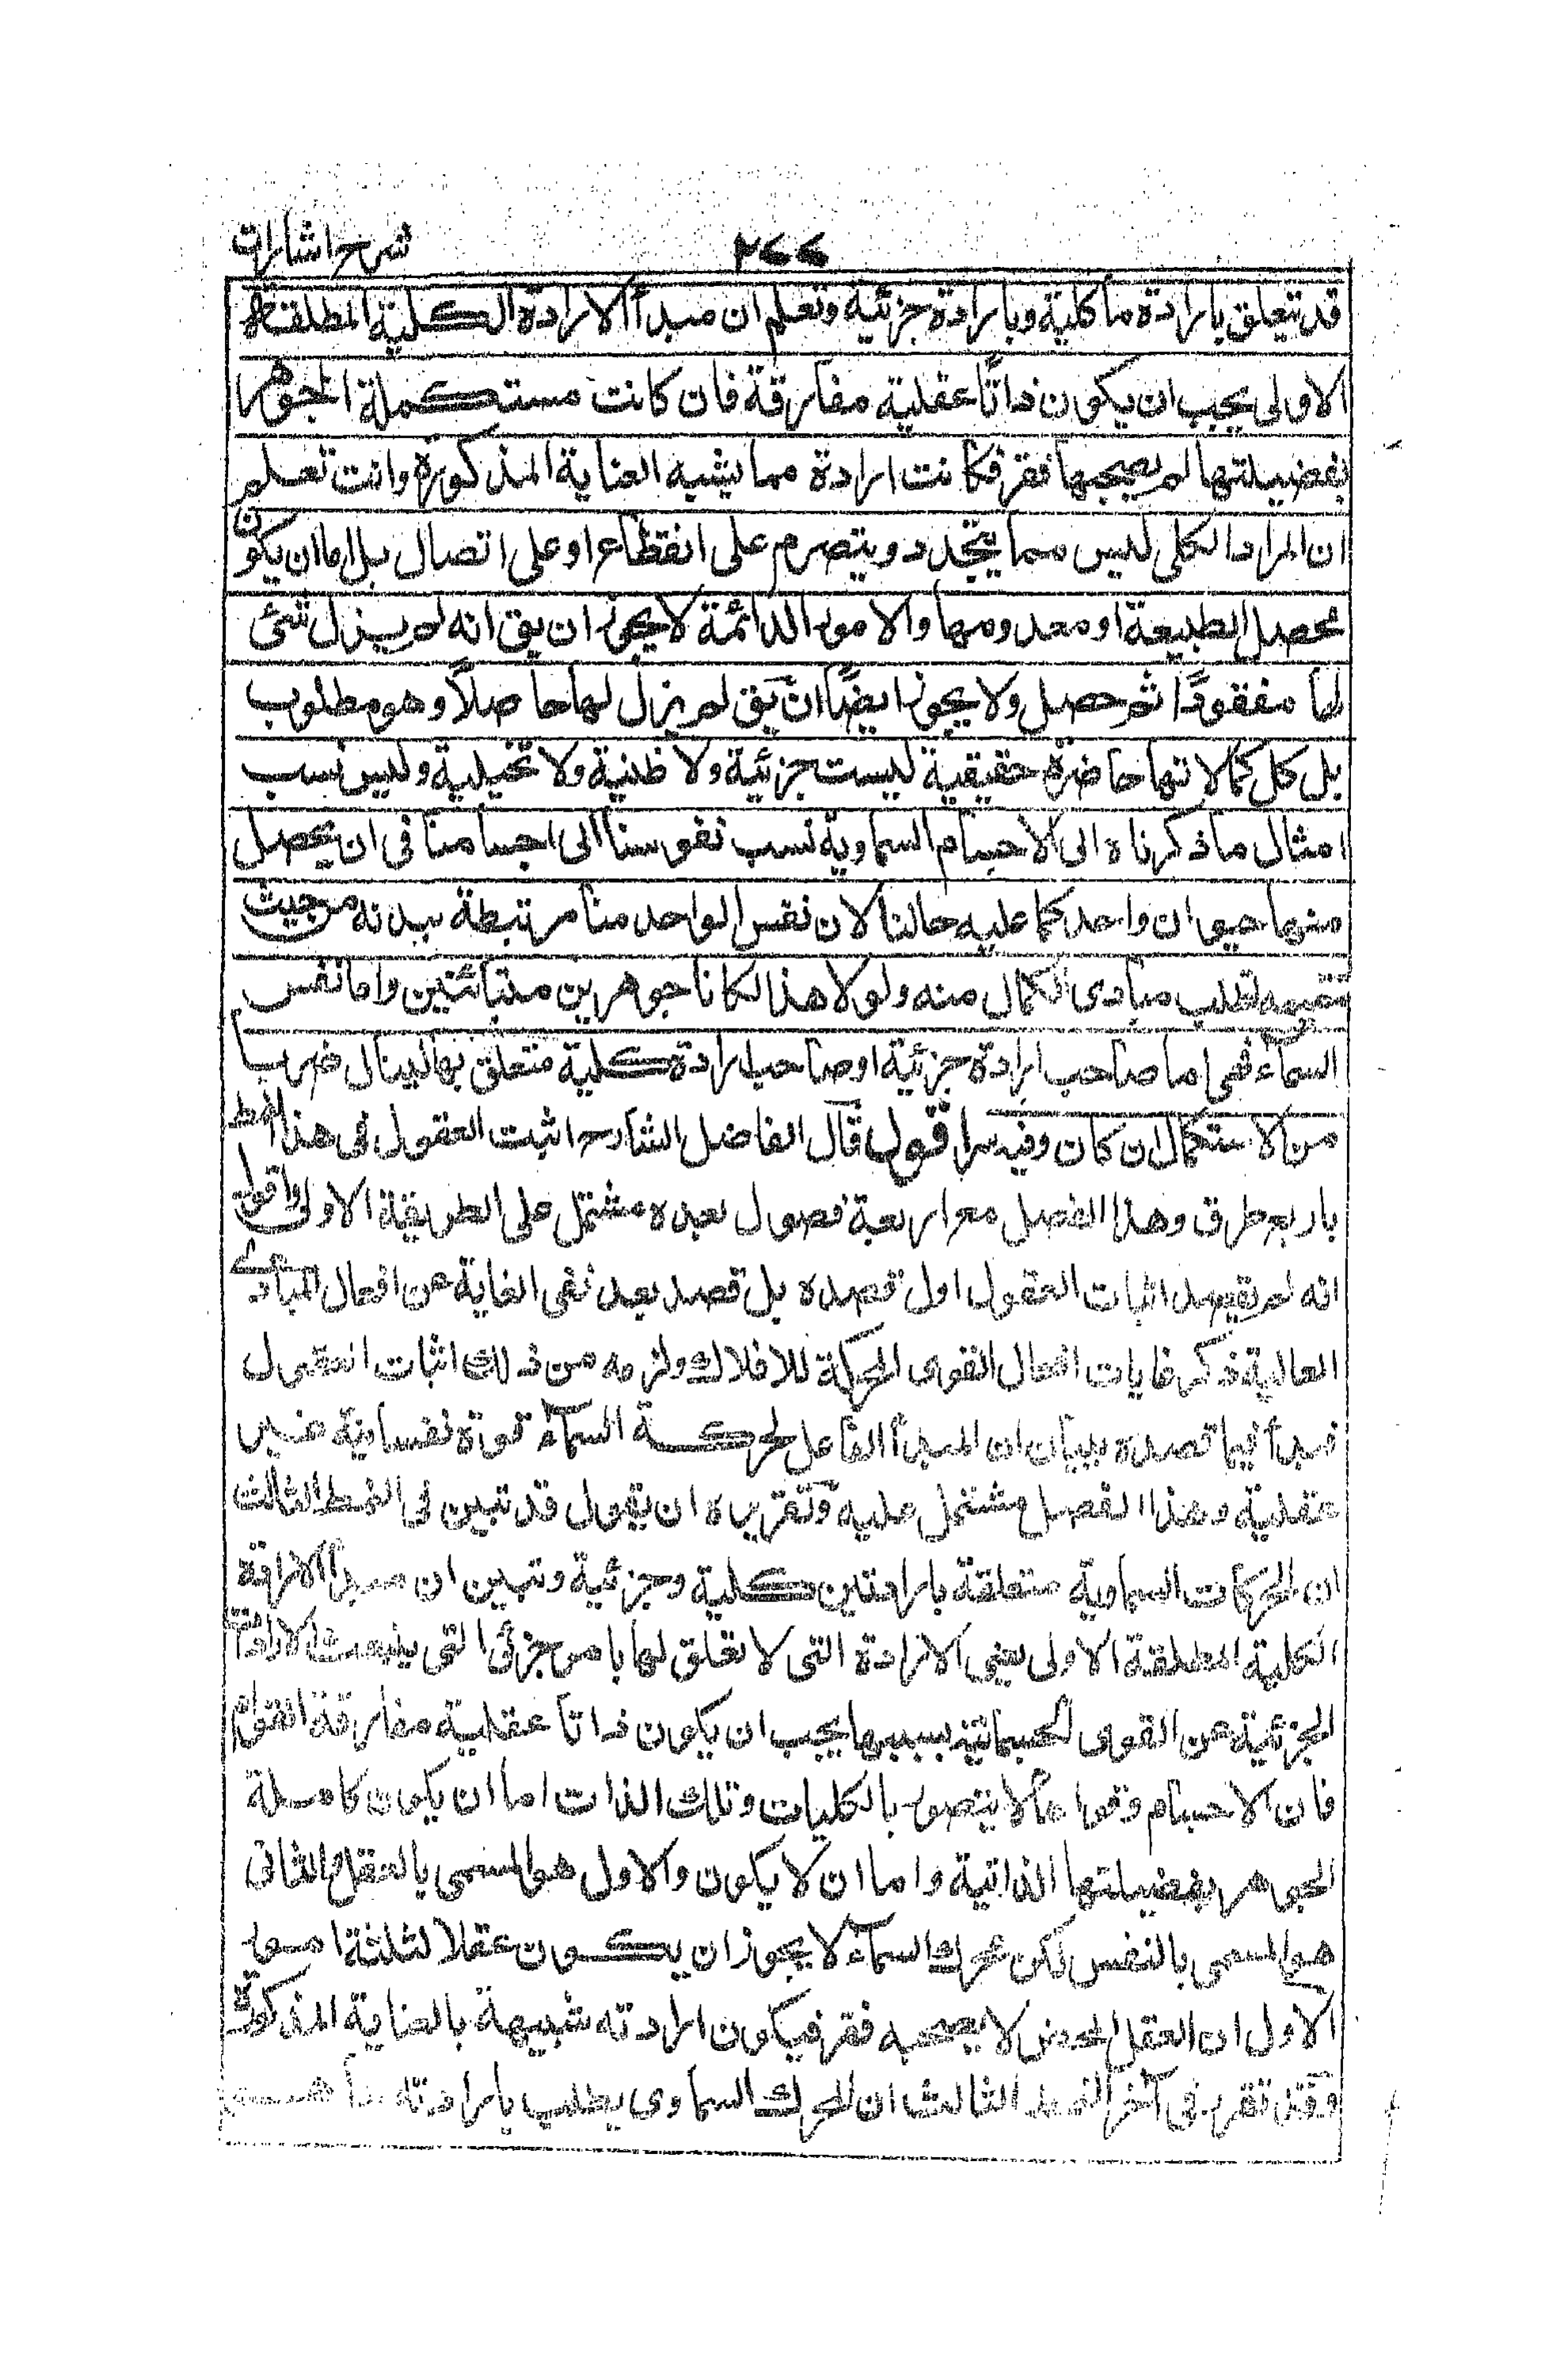 شرح اشارات
٢٧٧
قد تتعلق بارادة ما كلية وبارادة جزئية وتعلم ان مبدأ الارادة الكلية المطلقة
الاولى يجب ان يكون ذاتًا عقلية مفارقة فان كانت مستكملة الجوهر
بفضيلتها لم يصحبها فقر فكانت ارادة مما يشبه العناية المذكورة وانت تعلم
ان المراد الكلى ليس مما يتجدد ويتصرم على انقطاع او على اتصال بل اما ان يكون
محصل الطبيعة او معدومها والامور الدائمة لا يجوز ان يق انه لم يزل شئ
لها مفقودًا ثم حصل ولا يجوز ايضًا ان يق لم يزل لها حاصلًا وهو مطلوب
بل كل كمالاتها حاضرة حقيقية ليست جزئية ولا ظنية ولا تخيلية وليس نسب
امثال ما ذكرناه الى الاجسام السماوية نسب نفوسنا الى اجسامنا فى ان يحصل
منها حيوان واحد كما عليه حالنا لان نفس الواحد منا مرتبطة ببدنه من حيث
تتميمه تطلب مبادى الكمال منه ولولا هذا لكانا جوهرين متبائنين واما نفس
السماء فهى اما صاحب ارادة جزئية او صاحب ارادة كلية متعلق بها لينال ضربا
من الاستكمال ان كان وفيه سر اقول قال الفاضل الشارح اثبت العقول فى هذا النمط
باربع طرق وهذا الفصل مع اربعة فصول بعده مشتمل على الطريقة الاولى واقول
انه لم يقصد اثبات العقول اول قصده بل قصد بعد نفى الغاية عن افعال المبادى
العالية ذكر غايات افعال القوى المحركة للافلاك ولزمه من ذلك اثبات العقول
فبدأ فيما قصده ببيان ان المبدأ الفاعل لحركة السماء قوة نفسانية غير
عقلية وهذا الفصل مشتمل عليه وتقريره ان يقول قد تبين فى النمط الثالث
ان الحركات السماوية متعلقة بارادتين كلية وجزئية وتبين ان مبدأ الارادة
الكلية المطلقة الاولى يعنى الارادة التى لا تعلق لها بامر جزئى التى ينبعث الارادة
الجزئية عن القوى الجسمانية بسببها يجب ان يكون ذاتا عقلية مفارقة القوام
فان الاجسام وقواها لا يتصور بالكليات وتلك الذات اما ان يكون كاملة
الجوهر بفضيلتها الذاتية واما ان لا يكون والاول هو المسمى بالعقل والثانى
هو المسمى بالنفس لكن محرك السماء لا يجوز ان يكون عقلا لثلثة امور
الاول ان العقل المحض لا يصحبه فقر فيكون ارادته شبيهة بالعناية المذكورة
وقد تقرر فى آخر النمط الثالث ان المحرك السماوى يطلب بارادته